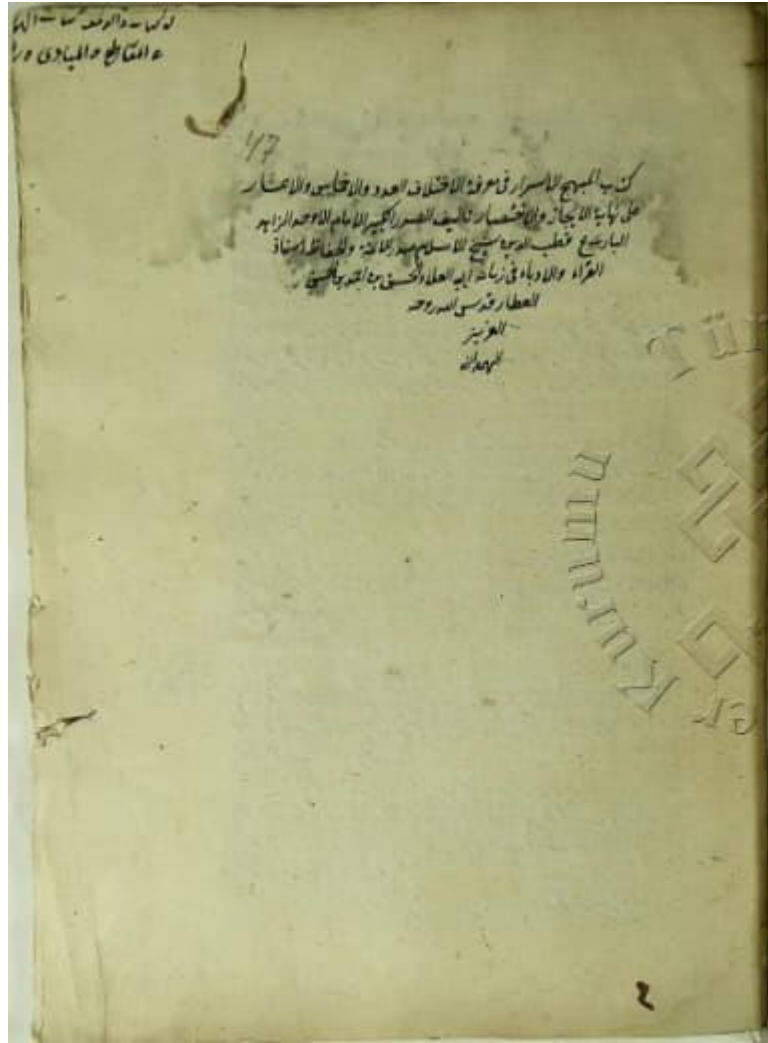 والمقاطع والمبادى
47
كتاب المبهج للاسرار فى معرفة الاختلاف العدد والاخماس والاعشار
على نهاية الايجاز والاختصار تاليف الصدر الكبير الامام الاوحد الزاهد
البارع قطب الدين شيخ الاسلام والحفاظ استاذ
القراء والادباء فى زمانه ابى العلاء الحسن بن
العطار قدس الله روحه
العزيز
الهمدانى
er Kurumu
Tür
2